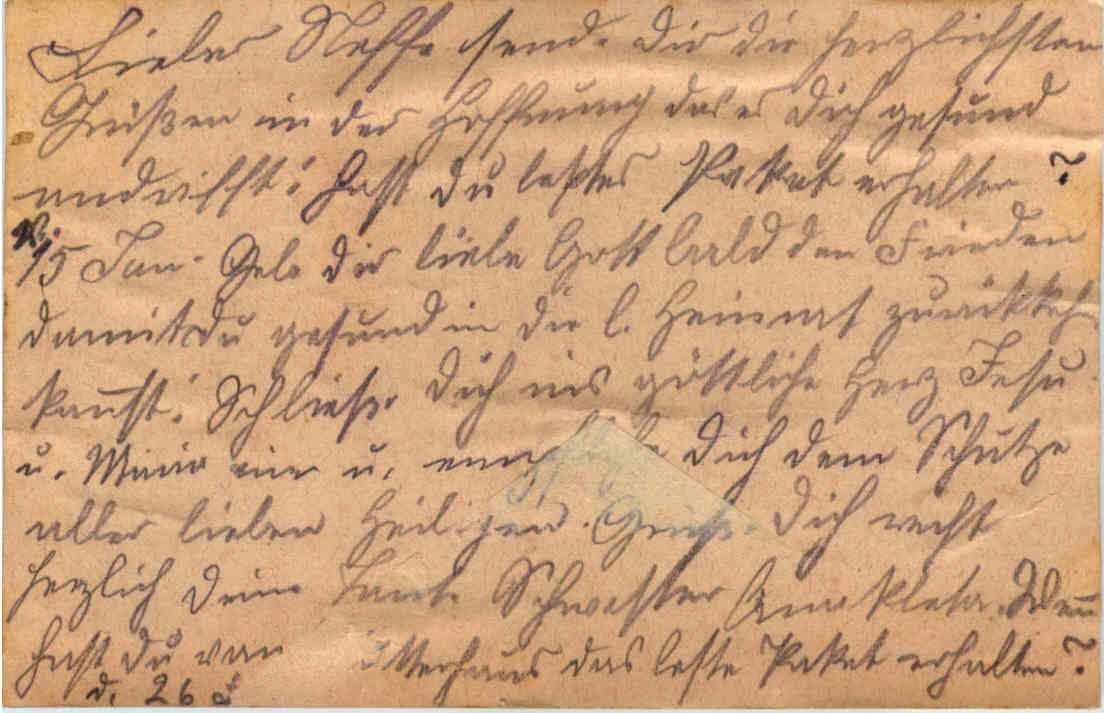 Lieber Neffe sende Dir die herzlichsten
Grüßen in der Hoffnung das es Dich gesund
andrifft. Hast du letztes Paket erhalten?
v. 15 Jan. Gebe dir liebe Gott bald den Frieden
damit du gesund in die l. Heimat zurükkeh.
kannst. Schließe Dich ins göttliche Herz Jesu
u. Maria ein u. empfehle Dich dem Schutze
aller lieben Heiligen. Grüße Dich recht
herzlich Deine Tante Schwester Anakleta. Wen̄
hast du von utterhaus das letzte Paket erhalten?
d. 26